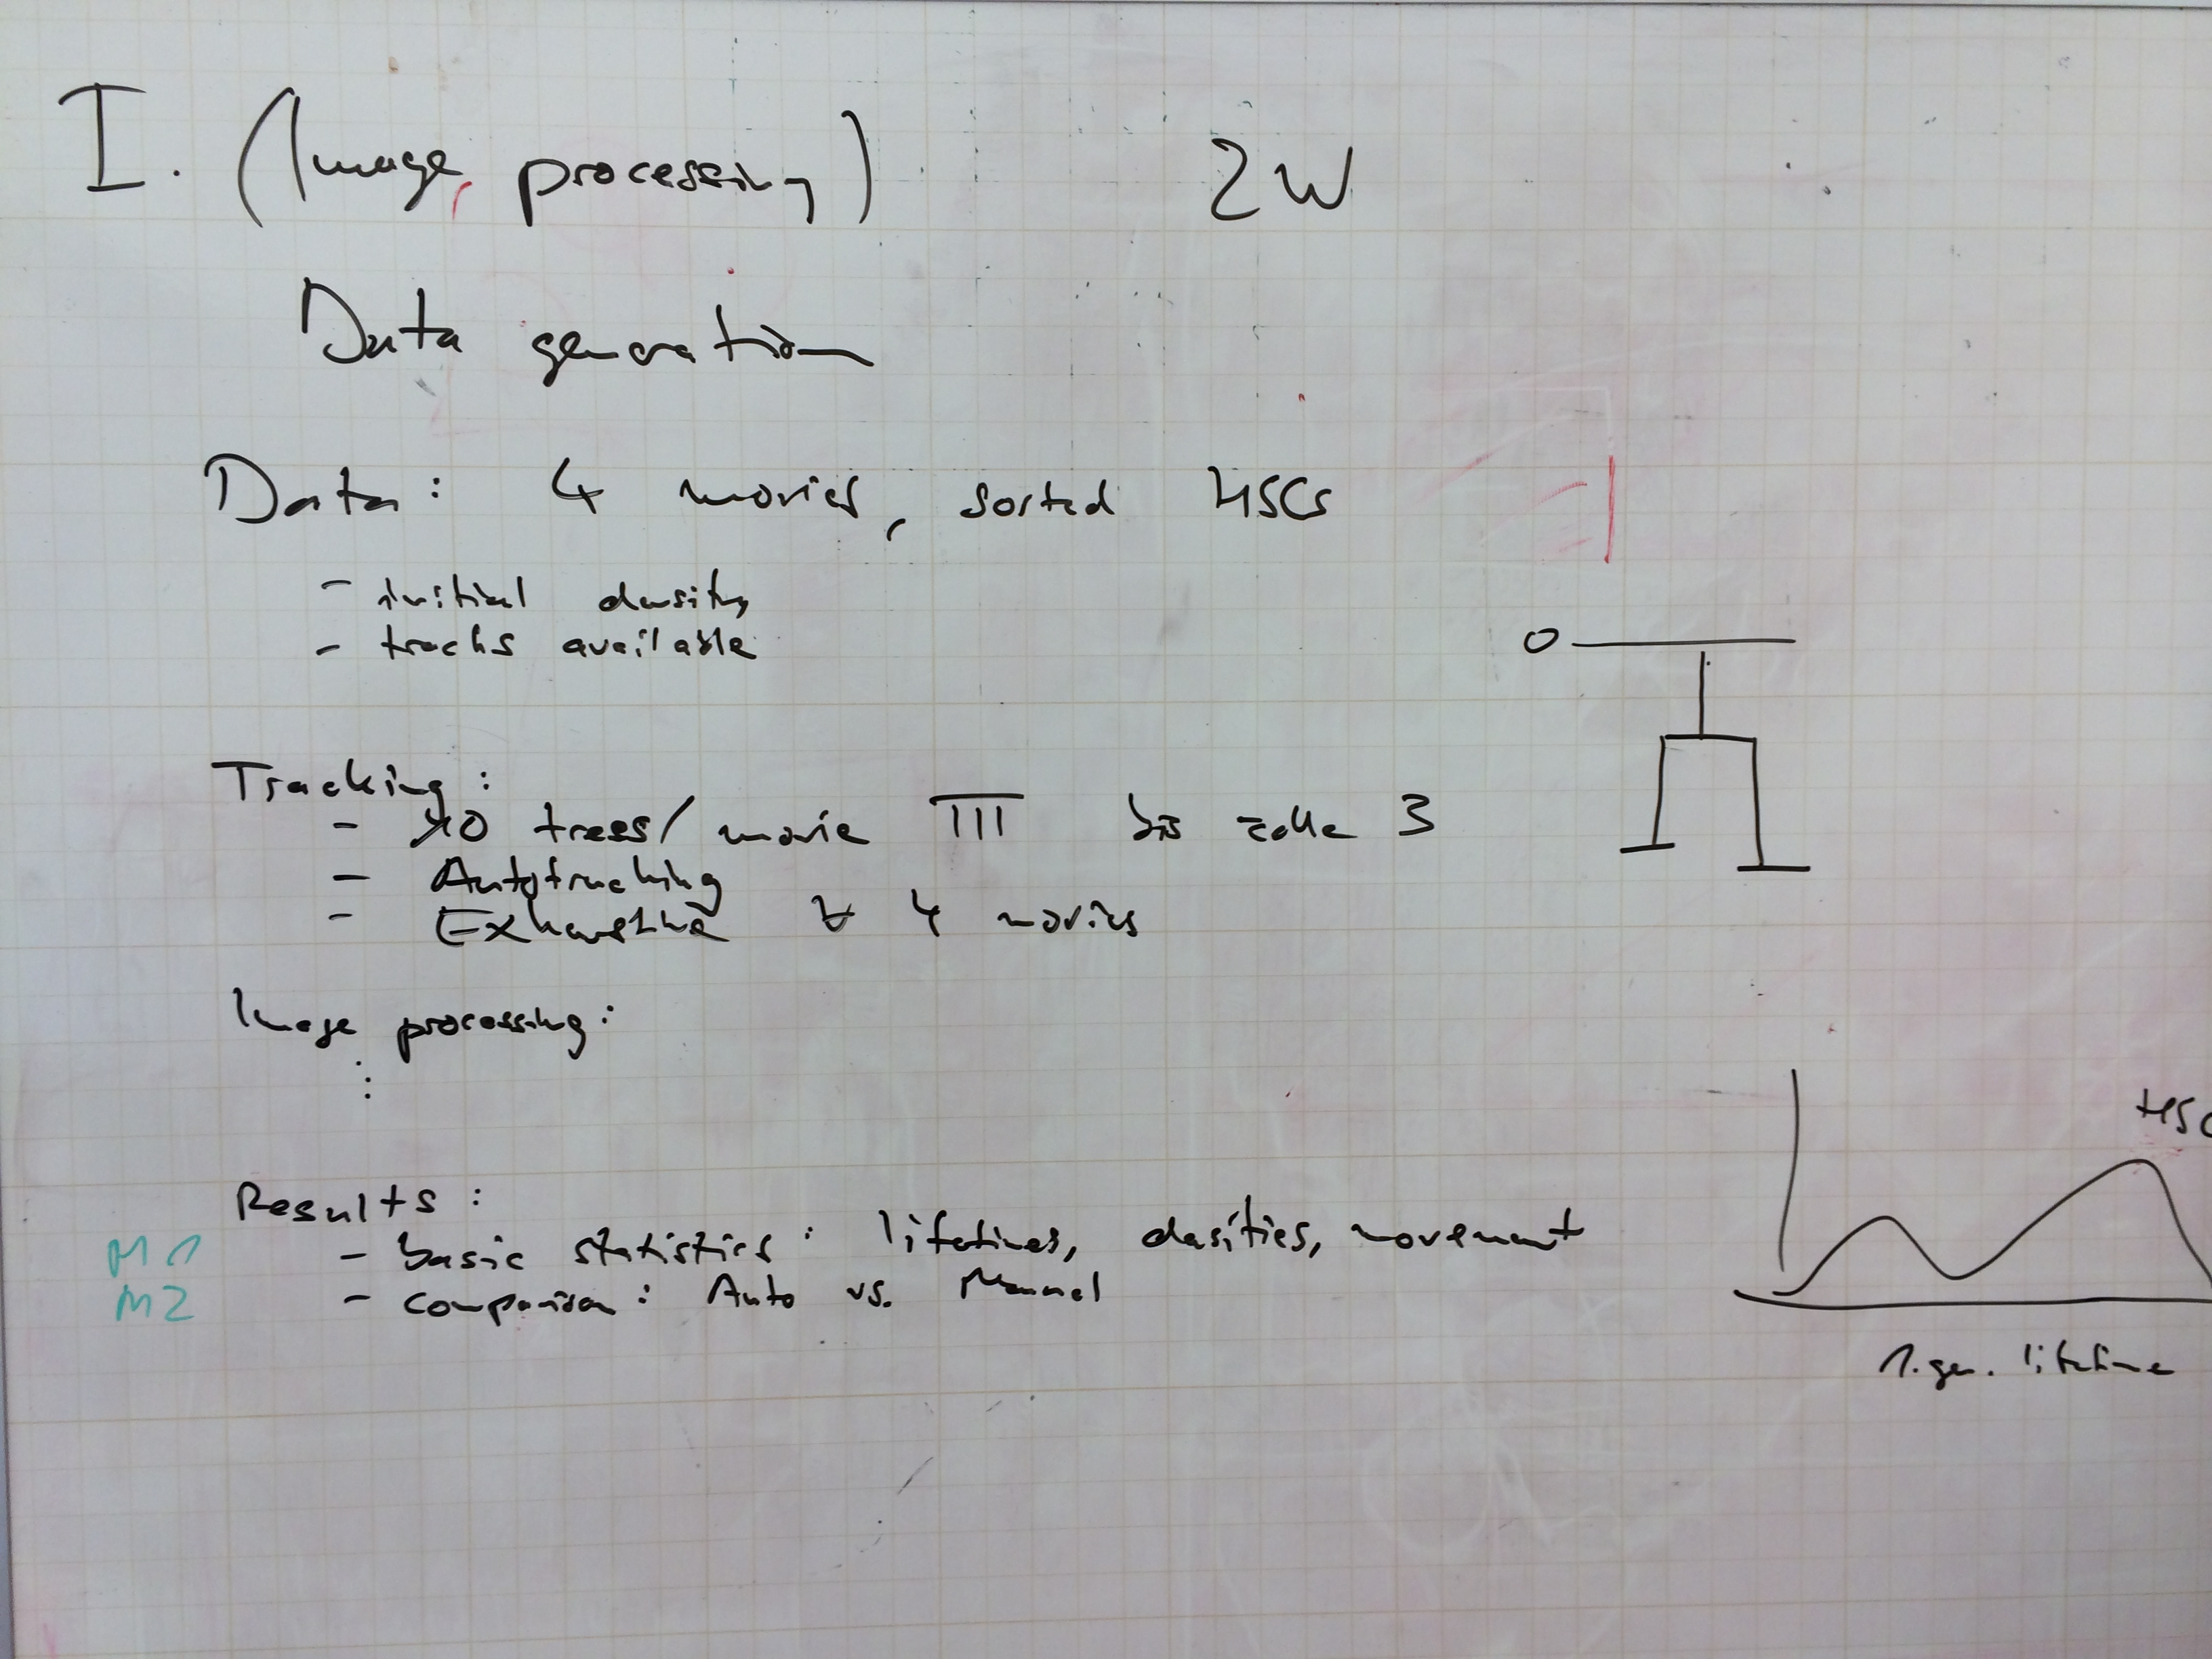 I. (Image processing) 2W
Data generation
Data: 4 movies, sorted HSCs
- initial density
- tracks available
0
Tracking:
- 10 trees/movie III bis zelle 3
- Autotracking
- Exhaustive 4 movies
Image processing:
⋮
HSC
Results:
M1 - basic statistics: lifetimes, desities, movement
M2 - comparison: Auto vs. Manual
1. gen. lifetime